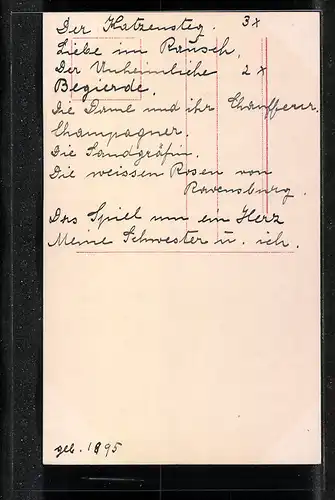 Der Katzensteg. 3x
Liebe im Rausch.
Der Unheimliche 2x
Begierde.
Die Dame und ihr Chauffeur.
Champagner.
Die Sandgräfin.
Die weissen Rosen von
Ravensburg.
Das Spiel um ein Herz
Meine Schwester u. ich.
geb. 1895